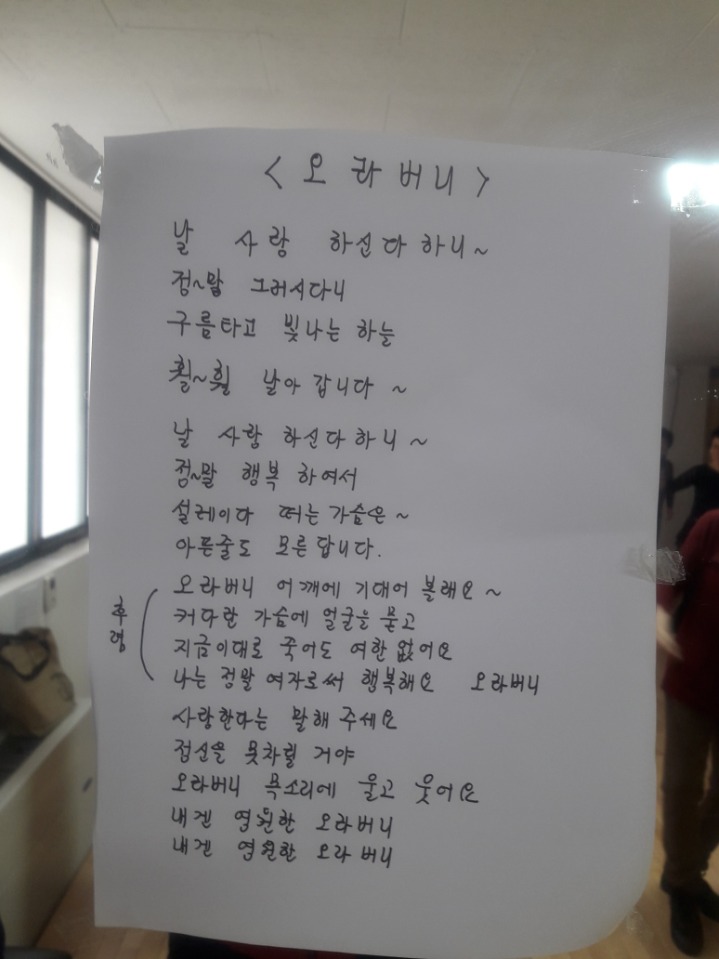 <오라버니>
날 사랑 하신다 하니~
정~말 그러시다니
구름타고 빛나는 하늘
훨~훨 날아 갑니다 ~
날 사랑 하신다 하니 ~
정~말 행복 하여서
설레이다 떠는 가슴은 ~
아픈줄도 모른답니다.
오라버니 어깨에 기대어 볼래요 ~
커다란 가슴에 얼굴을 묻고
후렴
지금이대로 죽어도 여한 없어요
나는 정말 여자로써 행복해요 오라버니
사랑한다는 말해 주세요
정신을 못차릴 거야
오라버니 목소리에 울고 웃어요
내겐 영원한 오라버니
내겐 영원한 오라버니